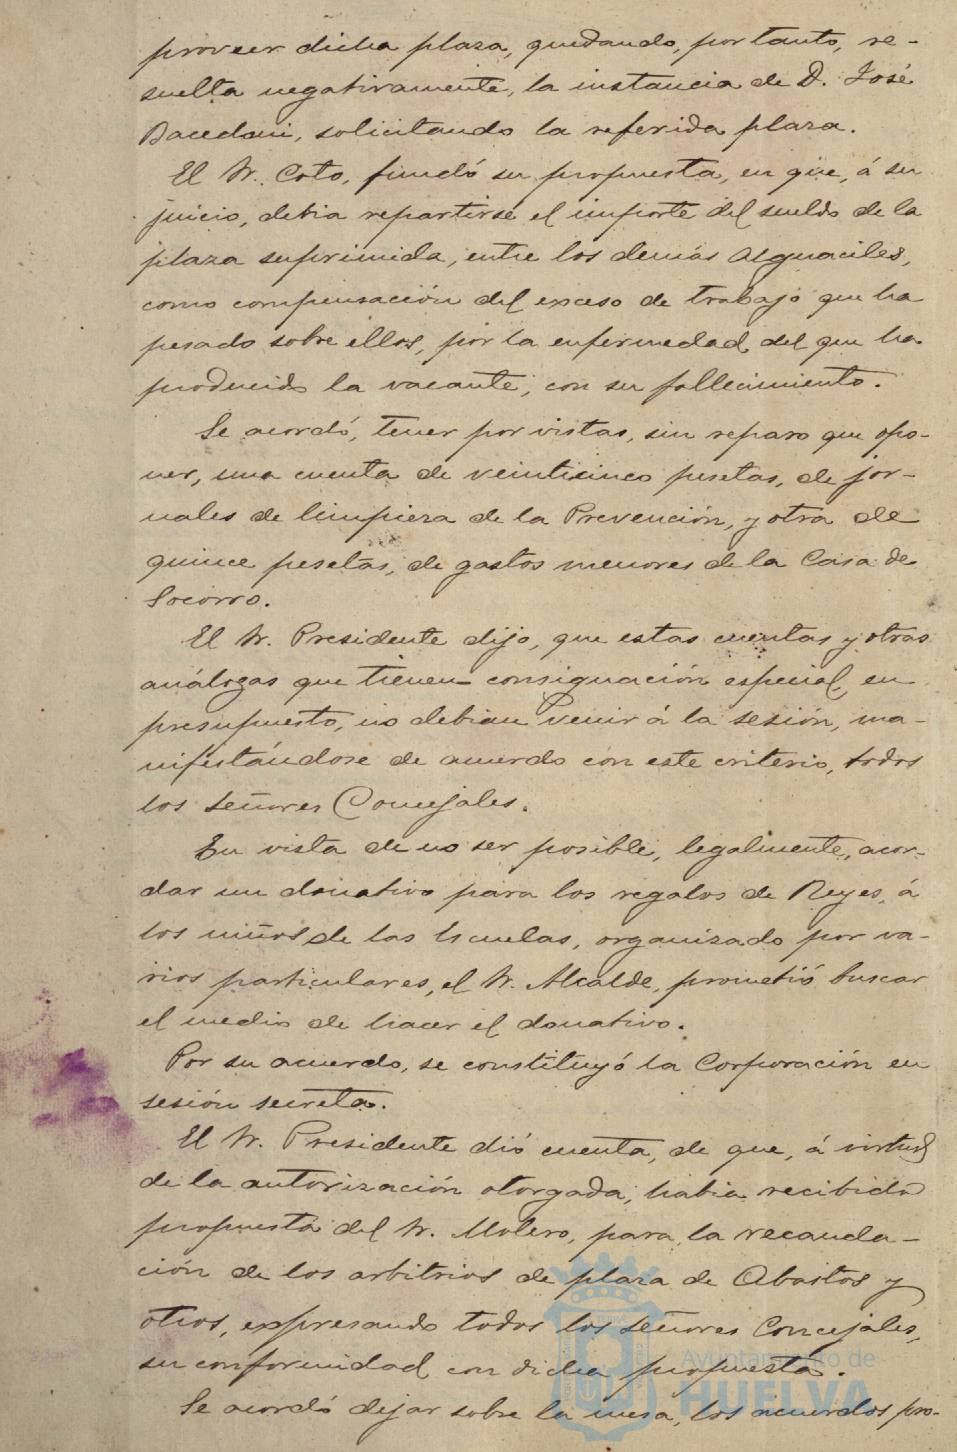 proveer dicha plaza, quedando, por tanto, re-
suelta negativamente, la instancia de D. José
solicitando la referida plaza.
El Sr. Coto, fundó su propuesta, en que, á su
juicio, debia repartirse el importe del sueldo de la
plaza suprimida, entre los demás Alguaciles,
como compensación del exceso de trabajo que ha
pesado sobre ellos, por la enfermedad del que ha
producido la vacante, con su fallecimiento.
Se acordó, tener por vistas, sin reparo que opo-
ner, una cuenta de veinticinco pesetas, de jor-
nales de limpieza de la Prevención, y otra de
quince pesetas, de gastos menores de la Casa de
Socorro.
El Sr. Presidente dijo, que estas cuentas y otras
análogas que tienen consignación especial en
presupuesto, no debian venir á la sesión, ma-
nifestándose de acuerdo con este criterio, todos
los señores Concejales.
En vista de no ser posible, legalmente, acor-
dar un donativo para los regalos de Reyes, á
los niños de las Escuelas, organizado por va-
rios particulares, el Sr. Alcalde, prometió buscar
el medio de hacer el donativo.
Por su acuerdo, se constituyó la Corporación en
sesión secreta.
El Sr. Presidente dió cuenta, de que, á virtud
de la autorización otorgada, habia recibido
propuesta del Sr. Molero, para la recauda-
ción de los arbitrios de plaza de Abastos y
otros, expresando todos los señores Concejales,
su conformidad con dicha propuesta.
Se acordó dejar sobre la mesa, los acuerdos pro-
Ayuntamiento de
HUELVA